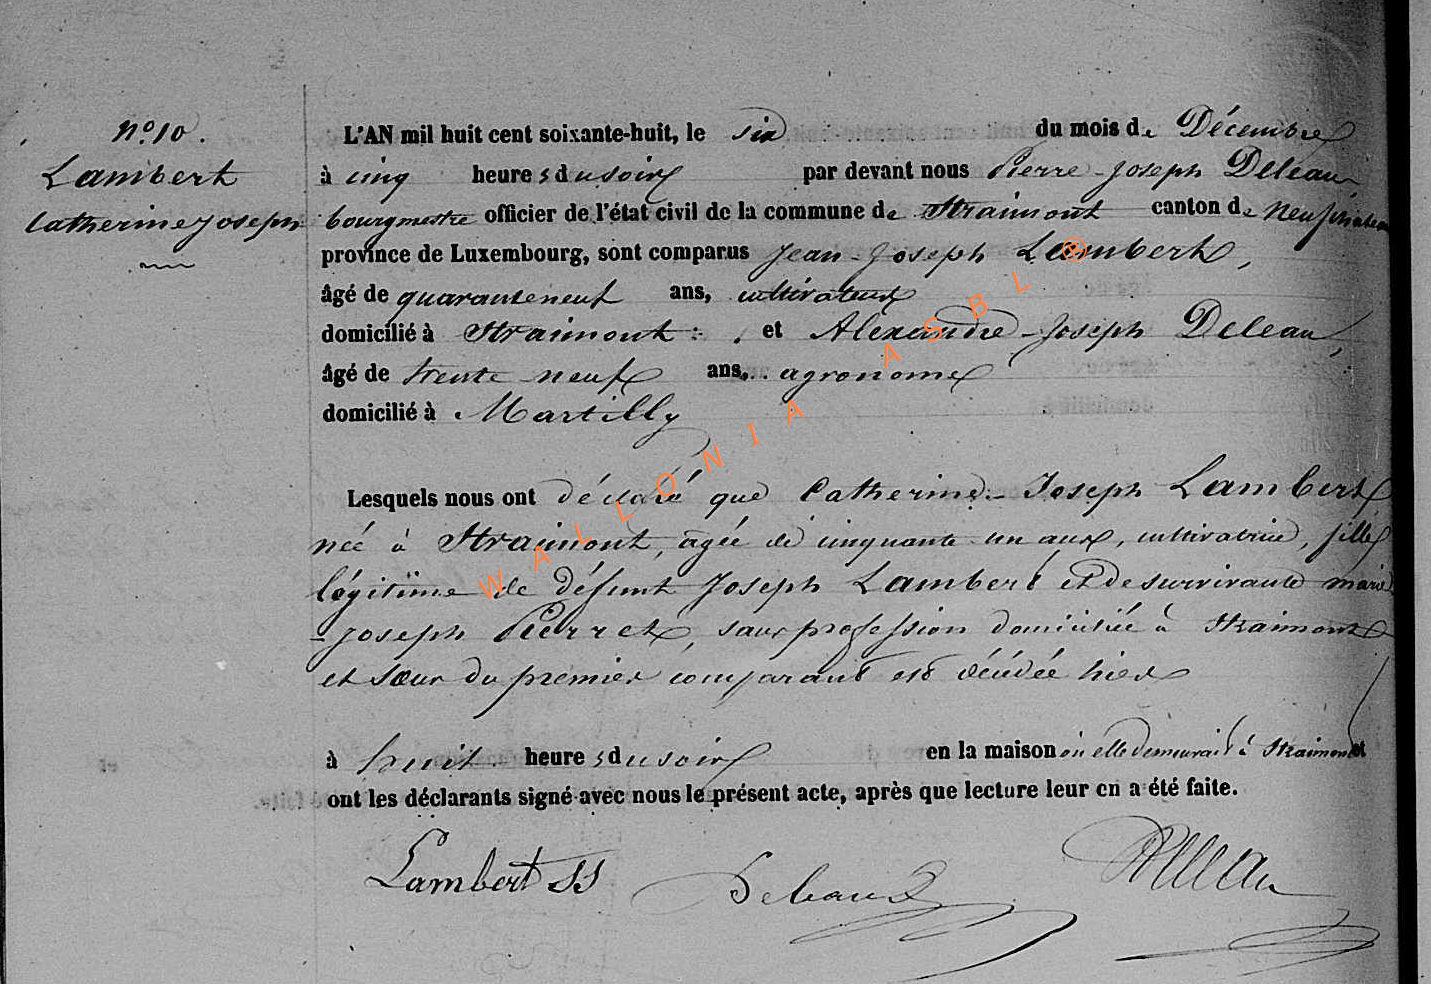 N° 10.
Lambert
Catherine Joseph
L'AN mil huit cent soixante-huit, le six du mois de Décembre
à cinq heures du soir par devant nous Pierre-Joseph Deleau
bourgmestre officier de l'état civil de la commune de Straimont canton de Neufchateau
province de Luxembourg, sont comparus Jean-Joseph Lambert,
âgé de quarante neuf ans, cultivateur
domicilié à Straimont : et Alexandre-Joseph Deleau,
âgé de trente neuf ans, agronome
domicilié à Martilly
Lesquels nous ont déclaré que Catherine-Joseph Lambert
née à Straimont, agée de cinquante un ans, cultivatrice, fille
légitime de défunt Joseph Lambert et de survivante marie
-joseph Pierret, sans profession domiciliée à Straimont
et sœur du premier comparant est décédée hier
à huit heures du soir en la maison où elle demeurait à Straimont et
ont les déclarants signé avec nous le présent acte, après que lecture leur en a été faite.
Lambert JJ Deleau Deleau
WALLONIA ASBL ©